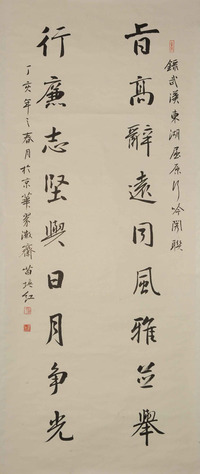 錄武漢東湖屈原行吟閣聯
旨高辭遠同風雅並舉
行廉志堅與日月争光
丁亥年之春月於京華齋苗培红